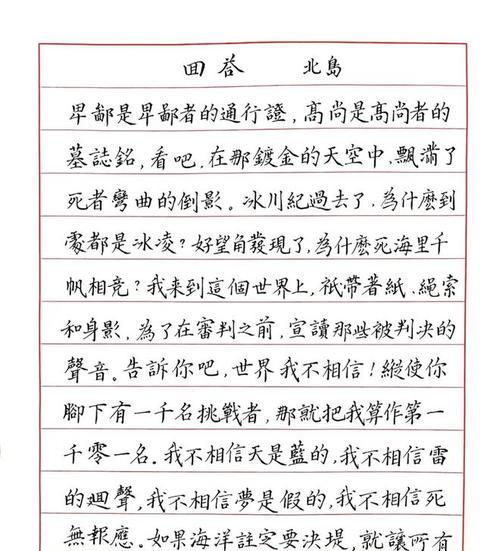 回答 北島
卑鄙是卑鄙者的通行證，高尚是高尚者的
墓誌銘，看吧．在那鍍金的天空中，飄滿了
死者彎曲的倒影。冰川紀過去了．為什麼到
處都是冰凌？好望角發現了，為什麼死海里千
帆相竞？我来到這個世界上，祇帶著紙．繩索
和身影，為了在審判之前，宣讀那些被判决的
聲音。告訴你吧，世界我不相信！縱使你
腳下有一千名挑戰者，那就把我算作第一
千零一名．我不相信天是藍的，我不相信雷
的廻聲，我不相信夢是假的，我不相信死
無報應。如果海洋註定要決堤，就讓所有